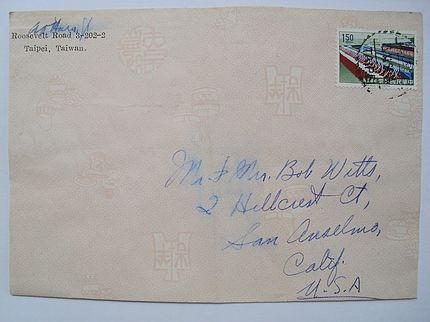 Roosevelt Road 3-202-2
Taipei, Taiwan.
150
中華民國
Mr. & Mrs. Bob Witts,
2 Hillcrest Ct,
San Anselmo,
Calif.
U.S.A